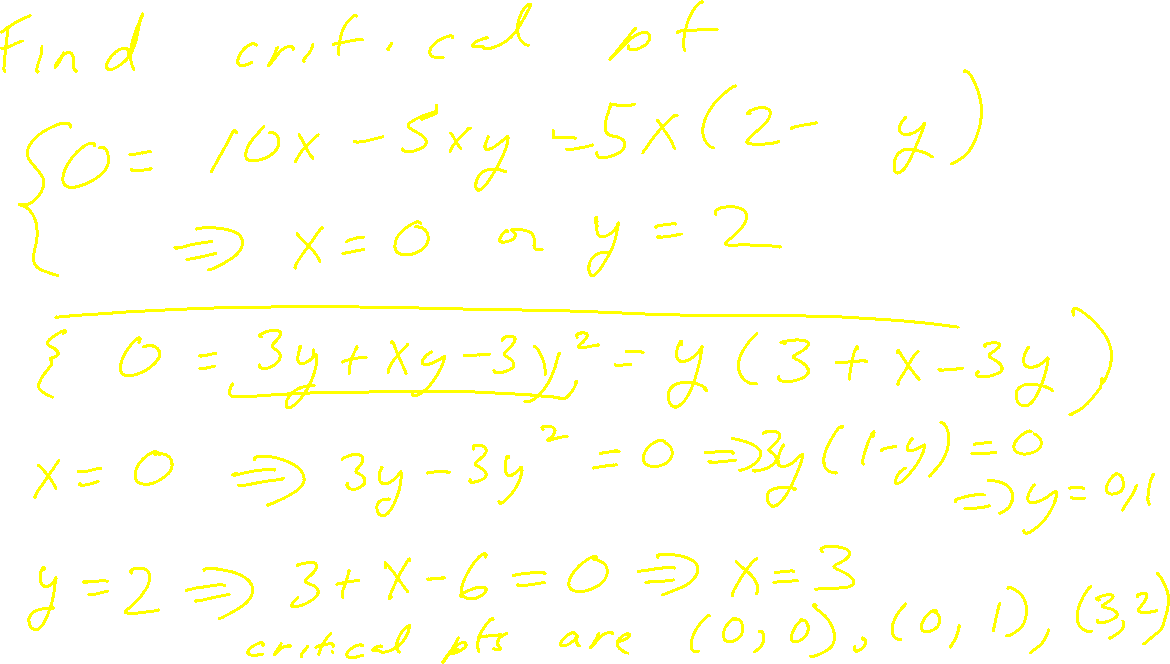 Find critical pt
{0 = 10x - 5xy = 5x(2 - y)
⇒ x = 0 or y = 2
{ 0 = 3y + xy - 3y² = y(3 + x - 3y)
x = 0 ⇒ 3y - 3y² = 0 ⇒ 3y(1-y) = 0
⇒ y = 0,1
y = 2 ⇒ 3 + x - 6 = 0 ⇒ x = 3
critical pts are (0,0), (0,1), (3,2)